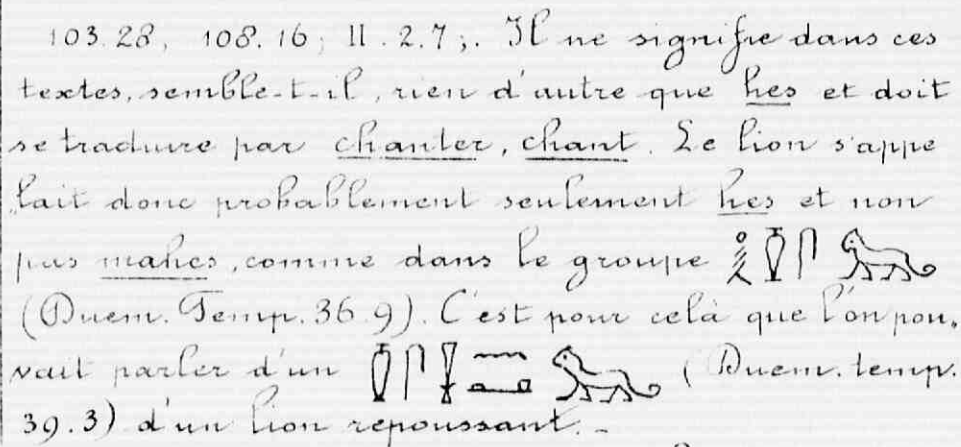 103.28, 108.16; II.2.7;. Il ne signifie dans ces
textes, semble-t-il, rien d'autre que hes et doit
se traduire par chanter, chant. Le lion s'appe
lait donc probablement seulement hes et non
pas mahes, comme dans le groupe
(Duem. Temp. 36.9). C'est pour celà que l'on pou-
vait parler d'un (Duem. temp.
39.3) d'un lion repoussant. -